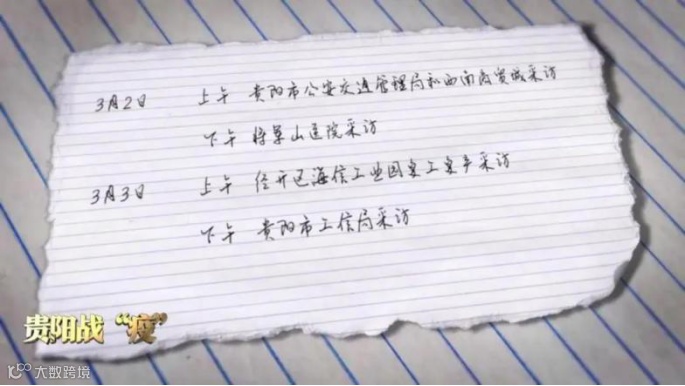 3月2日 上午 贵阳市公安交通管理局和西南商贸城采访
下午 将军山医院采访
3月3日 上午 经开区海信工业园复工复产采访
下午 贵阳市工信局采访
贵阳战“疫”
大数跨境